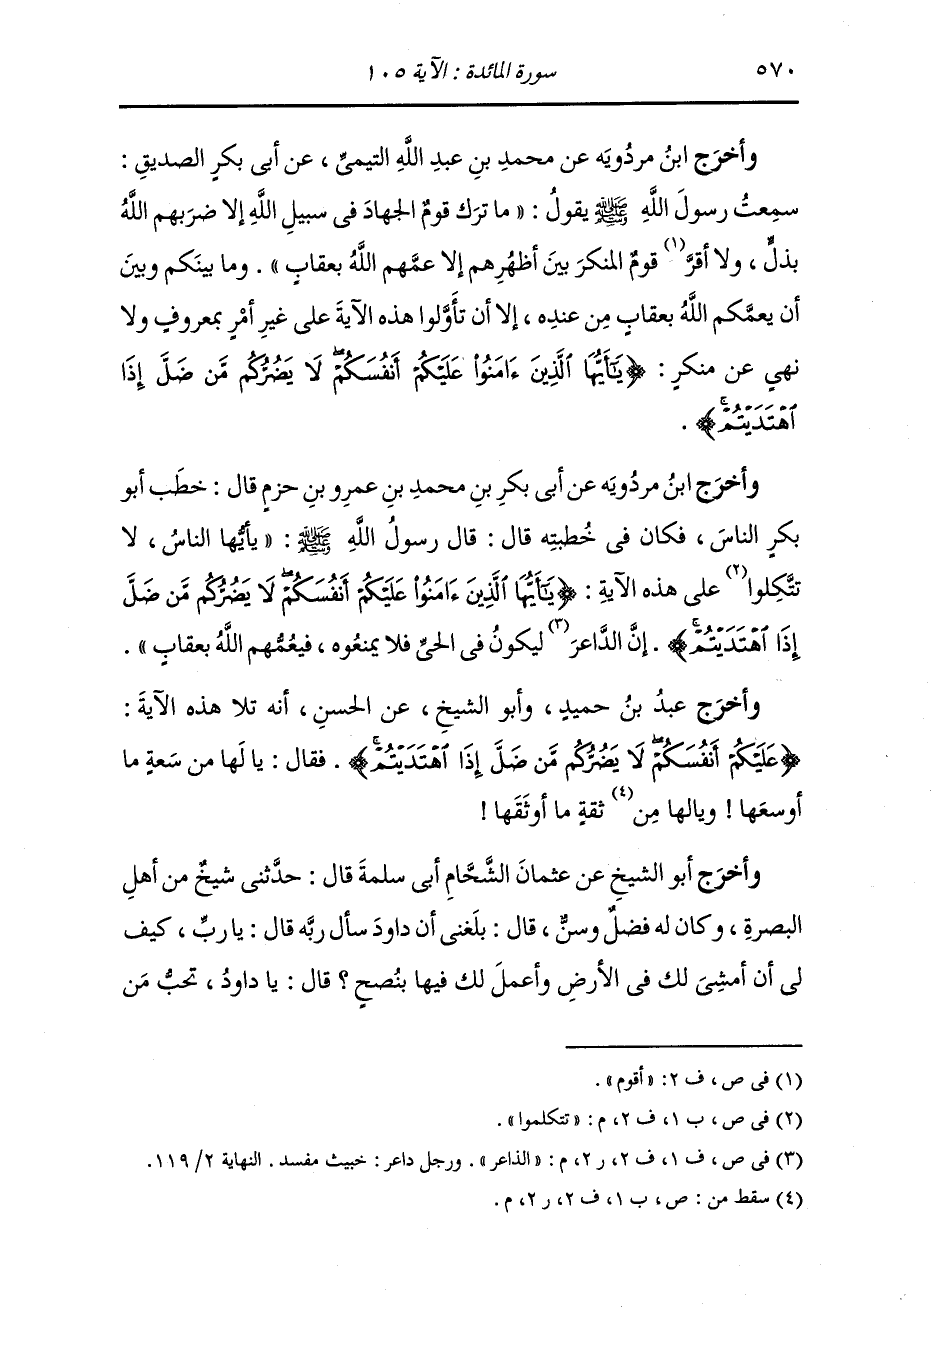 ٥٧٠
سورة المائدة : الآية ١٠٥
وأخرَج ابنُ مردُويَه عن محمدِ بنِ عبدِ اللَّهِ التيميِّ ، عن أبى بكرٍ الصديقِ :
سمِعتُ رسولَ اللَّهِ ﷺ يقولُ : « ما ترَك قومٌ الجهادَ فى سبيلِ اللَّهِ إلا ضرَبهم اللَّهُ
بذلٍّ ، ولا أقرَّ(١) قومٌ المنكرَ بينَ أظهُرِهم إلا عمَّهم اللَّهُ بعقابٍ » . وما بينَكم وبينَ
أن يعمَّكم اللَّهُ بعقابٍ مِن عندِه ، إلا أن تأَوَّلوا هذه الآيةَ على غيرِ أمْرٍ بمعروفٍ ولا
نهيٍ عن منكرٍ : ﴿يَٰٓأَيُّهَا ٱلَّذِينَ ءَامَنُوا۟ عَلَيْكُمْ أَنفُسَكُمْ ۖ لَا يَضُرُّكُم مَّن ضَلَّ إِذَا
ٱهْتَدَيْتُمْ ۚ﴾ .
وأخرَج ابنُ مردُويَه عن أبى بكرِ بنِ محمدِ بنِ عمرِو بنِ حزمٍ قال : خطَب أبو
بكرٍ الناسَ ، فكان فى خُطبتِه قال : قال رسولُ اللَّهِ ﷺ : « يأيُّها الناسُ ، لا
تتَّكِلوا(٢) على هذه الآيةِ : ﴿يَٰٓأَيُّهَا ٱلَّذِينَ ءَامَنُوا۟ عَلَيْكُمْ أَنفُسَكُمْ ۖ لَا يَضُرُّكُم مَّن ضَلَّ
إِذَا ٱهْتَدَيْتُمْ ۚ﴾ . إنَّ الدَّاعرَ(٣) ليكونُ فى الحىِّ فلا يمنعُوه ، فيعُمُّهم اللَّهُ بعقابٍ » .
وأخرَج عبدُ بنُ حميدٍ ، وأبو الشيخِ ، عن الحسنِ ، أنه تلا هذه الآيةَ :
﴿عَلَيْكُمْ أَنفُسَكُمْ ۖ لَا يَضُرُّكُم مَّن ضَلَّ إِذَا ٱهْتَدَيْتُمْ ۚ﴾ . فقال : يا لَها من سَعةٍ ما
أوسعَها ! ويالها مِن(٤) ثقةٍ ما أوثَقَها !
وأخرَج أبو الشيخِ عن عثمانَ الشَّحَّامِ أبى سلمةَ قال : حدَّثنى شيخٌ من أهلِ
البصرةِ ، وكان له فضلٌ وسنٌّ ، قال : بلَغنى أن داودَ سأل ربَّه قال : يا ربِّ ، كيف
لى أن أمشِىَ لك فى الأرضِ وأعملَ لك فيها بنُصحٍ ؟ قال : يا داودُ ، تحبُّ مَن
(١) فى ص ، ف ٢ : « أقوم » .
(٢) فى ص ، ب ١ ، ف ٢ ، م : « تتكلموا » .
(٣) فى ص ، ف ١ ، ف ٢ ، ر ٢ ، م : « الذاعر » . ورجل داعر : خبيث مفسد . النهاية ٢/ ١١٩ .
(٤) سقط من : ص ، ب ١ ، ف ٢ ، ر ٢ ، م .